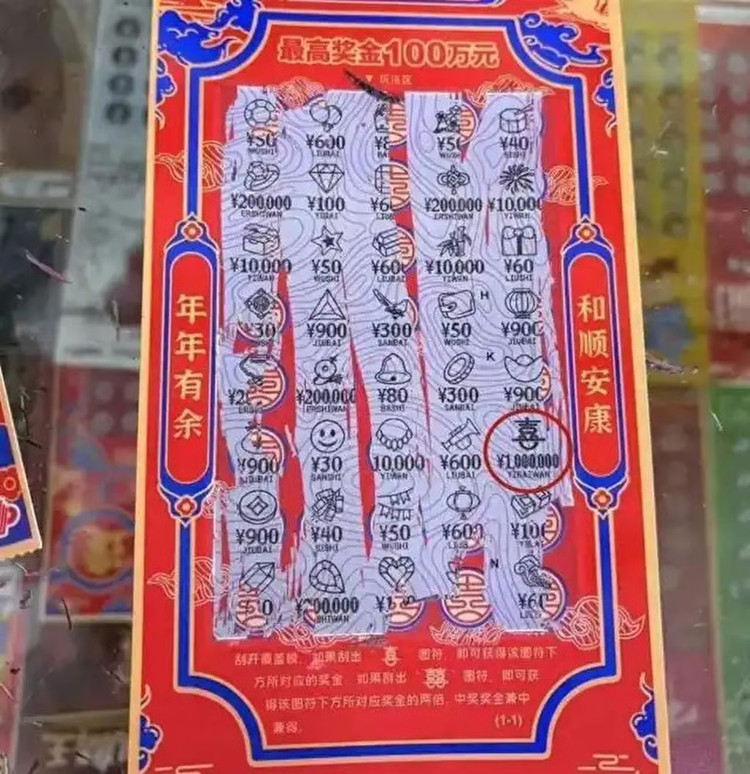 最高奖金100万元
▼ 玩法区
年年有余
和顺安康
¥50 ¥600 ¥50 ¥40
WUSHI LIUBAI WUSHI SISHI
¥200,000 ¥100 ¥200,000 ¥10,000
ERSHIWAN YIBAI ERSHIWAN YIWAN
¥10,000 ¥50 ¥600 ¥10,000 ¥60
YIWAN WUSHI LIUBAI YIWAN LIUSHI
¥30 ¥900 ¥300 ¥50 H ¥900
JIUBAI SANBAI WUSHI JIUBAI
¥200,000 ¥80 ¥300 K ¥900
ERSHIWAN BASHI SANBAI JIUBAI
喜
¥900 ¥30 10,000 ¥600 ¥1,000,000
JIUBAI SANSHI YIWAN LIUBAI YIBAIWAN
¥900 ¥40 ¥50 ¥600 ¥100
JIUBAI SISHI WUSHI LIUBAI YIBAI
N
刮开覆盖膜，如果刮出“喜”图符，即可获得该图符下
方所对应的奖金；如果刮出“囍”图符，即可获
得该图符下方所对应奖金的两倍。中奖奖金兼中
兼得。 (1-1)